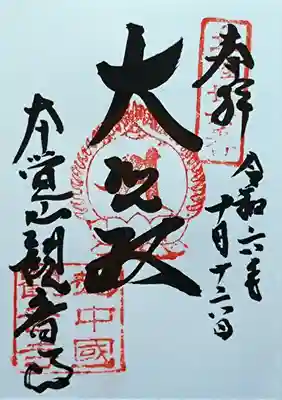 奉拝
令和六年
十月十二日
大悲殿
本覚山観音寺
中國